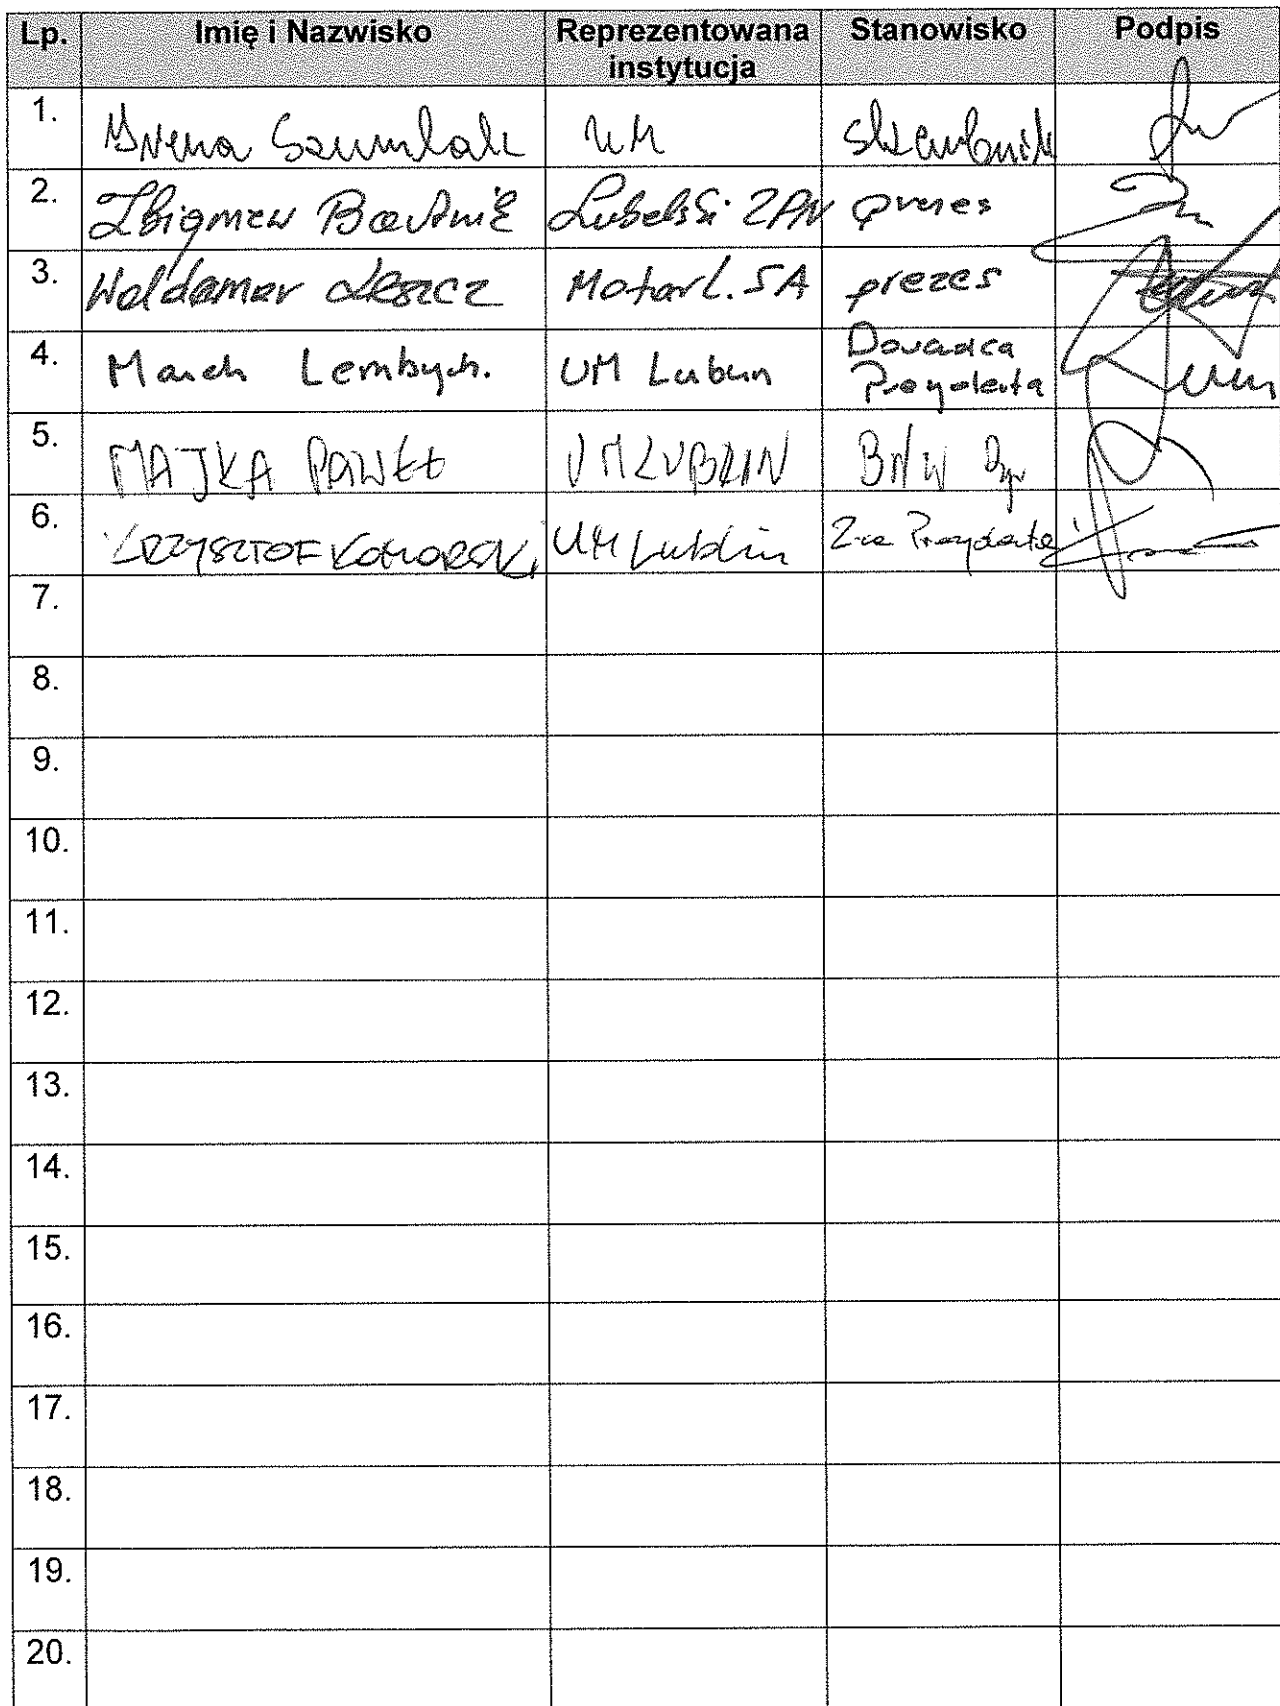 Lp. Imię i Nazwisko Reprezentowana instytucja Stanowisko Podpis
1. Irena Szumlak UM skarbnik
2. Zbigniew Bartnik Lubelski ZPN prezes
3. Waldemar Leszcz Motor L. SA prezes
4. Marek Lembrych. UM Lublin Doradca Prezydenta
5. MAJKA PAWEŁ UM LUBLIN
6. KRZYSZTOF KOMORSKI UM Lublin Z-ca Prezydenta
7.
8.
9.
10.
11.
12.
13.
14.
15.
16.
17.
18.
19.
20.